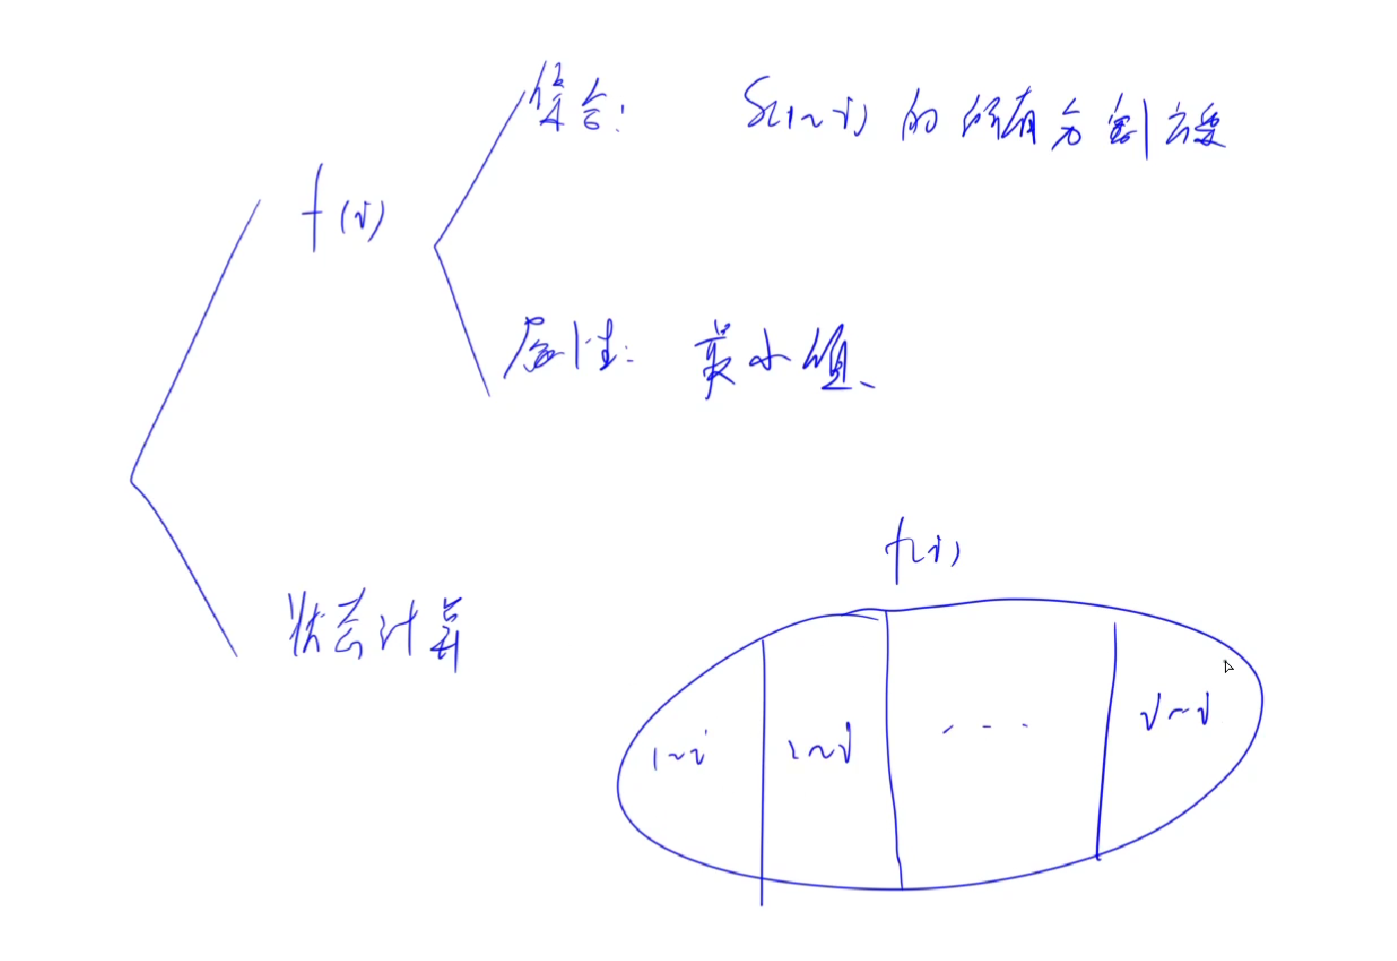 集合: S(1~i) 的所有分割方案
f(i)
属性: 最小值
f(i)
状态计算
1~i 2~i --- i~i